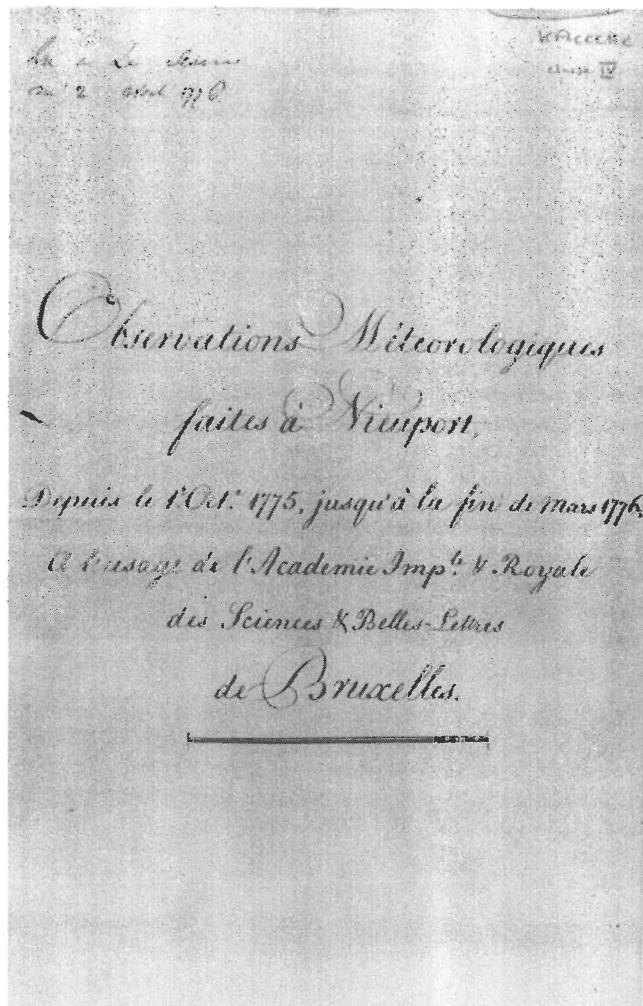 lu a la
2 1776
classe IV
Observations Méteorologiques
faites à Nieuport,
Depuis le 1.r Oct.e 1775, jusqu'à la fin de Mars 1776,
A l'usage de l'Academie Imp.le & Royale
des Sciences & Belles-Lettres
de Bruxelles.